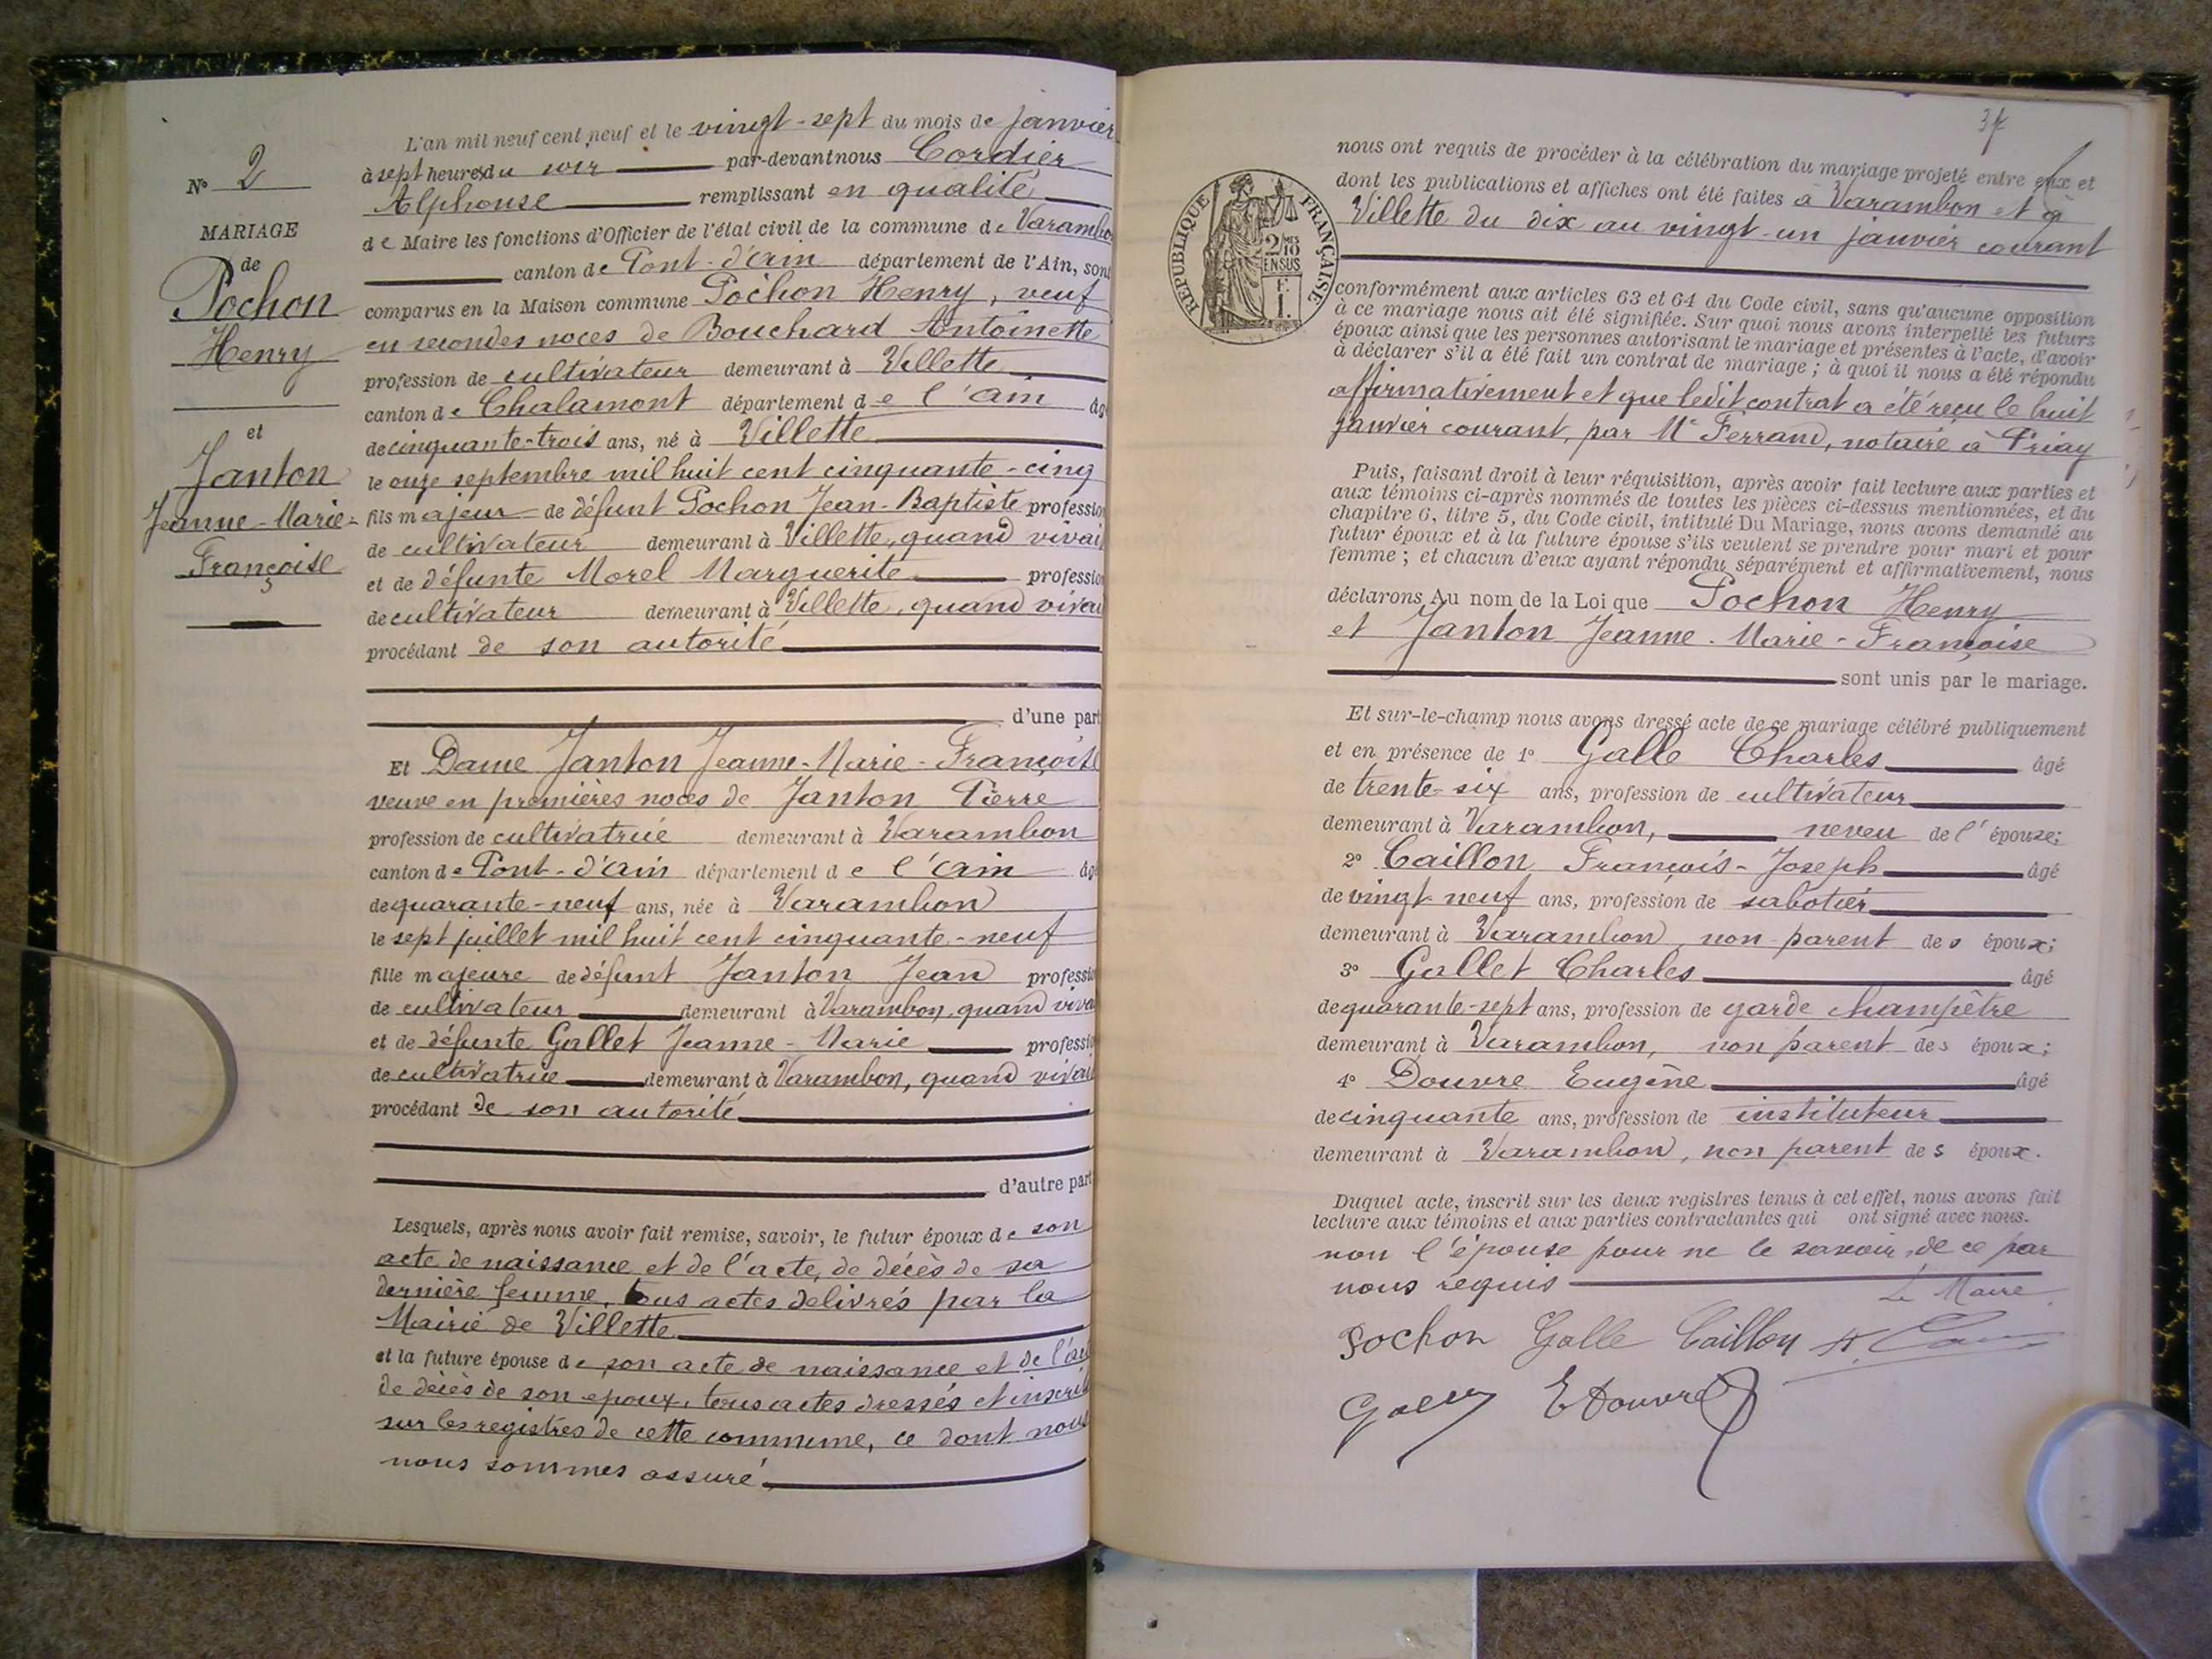 N° 2
MARIAGE
de
Pochon
Henry
et
Janton
Jeanne-Marie-
Françoise
L'an mil neuf cent neuf et le vingt-sept du mois de janvier
à sept heures du soir par-devant nous Cordier
Alphonse remplissant en qualité
de Maire les fonctions d'Officier de l'état civil de la commune de Varambon
canton de Pont-d'Ain département de l'Ain, sont
comparus en la Maison commune Pochon Henry, veuf
en secondes noces de Bouchard Antoinette
profession de cultivateur demeurant à Villette
canton de Chalamont département de l'Ain âgé
de cinquante-trois ans, né à Villette
le onze septembre mil huit cent cinquante-cinq
fils majeur de défunt Pochon Jean-Baptiste profession
de cultivateur demeurant à Villette, quand vivait
et de défunte Morel Marguerite profession
de cultivateur demeurant à Villette, quand vivait
procédant de son autorité
d'une part
Et Dame Janton Jeanne-Marie-Françoise
veuve en premières noces de Janton Pierre
profession de cultivatrice demeurant à Varambon
canton de Pont-d'Ain département de l'Ain âgé
de quarante-neuf ans, née à Varambon
le sept juillet mil huit cent cinquante-neuf
fille majeure de défunt Janton Jean profession
de cultivateur demeurant à Varambon, quand vivait
et de défunte Gallet Jeanne-Marie profession
de cultivatrice demeurant à Varambon, quand vivait
procédant de son autorité
d'autre part
Lesquels, après nous avoir fait remise, savoir, le futur époux de son
acte de naissance et de l'acte de décès de sa
dernière femme, tous actes délivrés par la
Mairie de Villette
et la future épouse de son acte de naissance et de l'acte
de décès de son époux, tous actes dressés et inscrits
sur les registres de cette commune, ce dont nous
nous sommes assuré
37
RÉPUBLIQUE FRANÇAISE
2/10
EN SUS
F.
1.
nous ont requis de procéder à la célébration du mariage projeté entre eux et
dont les publications et affiches ont été faites à Varambon et à
Villette du dix au vingt-un janvier courant
conformément aux articles 63 et 64 du Code civil, sans qu'aucune opposition
à ce mariage nous ait été signifiée. Sur quoi nous avons interpellé les futurs
époux ainsi que les personnes autorisant le mariage et présentes à l'acte, d'avoir
à déclarer s'il a été fait un contrat de mariage ; à quoi il nous a été répondu
affirmativement et que ledit contrat a été reçu le huit
janvier courant, par Me Ferrand, notaire à Priay
Puis, faisant droit à leur réquisition, après avoir fait lecture aux parties et
aux témoins ci-après nommés de toutes les pièces ci-dessus mentionnées, et du
chapitre 6, titre 5, du Code civil, intitulé Du Mariage, nous avons demandé au
futur époux et à la future épouse s'ils veulent se prendre pour mari et pour
femme ; et chacun d'eux ayant répondu séparément et affirmativement, nous
déclarons Au nom de la Loi que Pochon Henry
et Janton Jeanne-Marie-Françoise
sont unis par le mariage.
Et sur-le-champ nous avons dressé acte de ce mariage célébré publiquement
et en présence de 1° Galle Charles âgé
de trente-six ans, profession de cultivateur
demeurant à Varambon, neveu de l'épouse;
2° Caillon François-Joseph âgé
de vingt-neuf ans, profession de sabotier
demeurant à Varambon non parent des époux;
3° Gallet Charles âgé
de quarante-sept ans, profession de garde champêtre
demeurant à Varambon, non parent des époux;
4° Douvre Eugène âgé
de cinquante ans, profession de instituteur
demeurant à Varambon, non parent des époux.
Duquel acte, inscrit sur les deux registres tenus à cet effet, nous avons fait
lecture aux témoins et aux parties contractantes qui ont signé avec nous.
non l'épouse pour ne le savoir, de ce par
nous requis
Le Maire
Pochon Galle Caillon A.
E Douvre